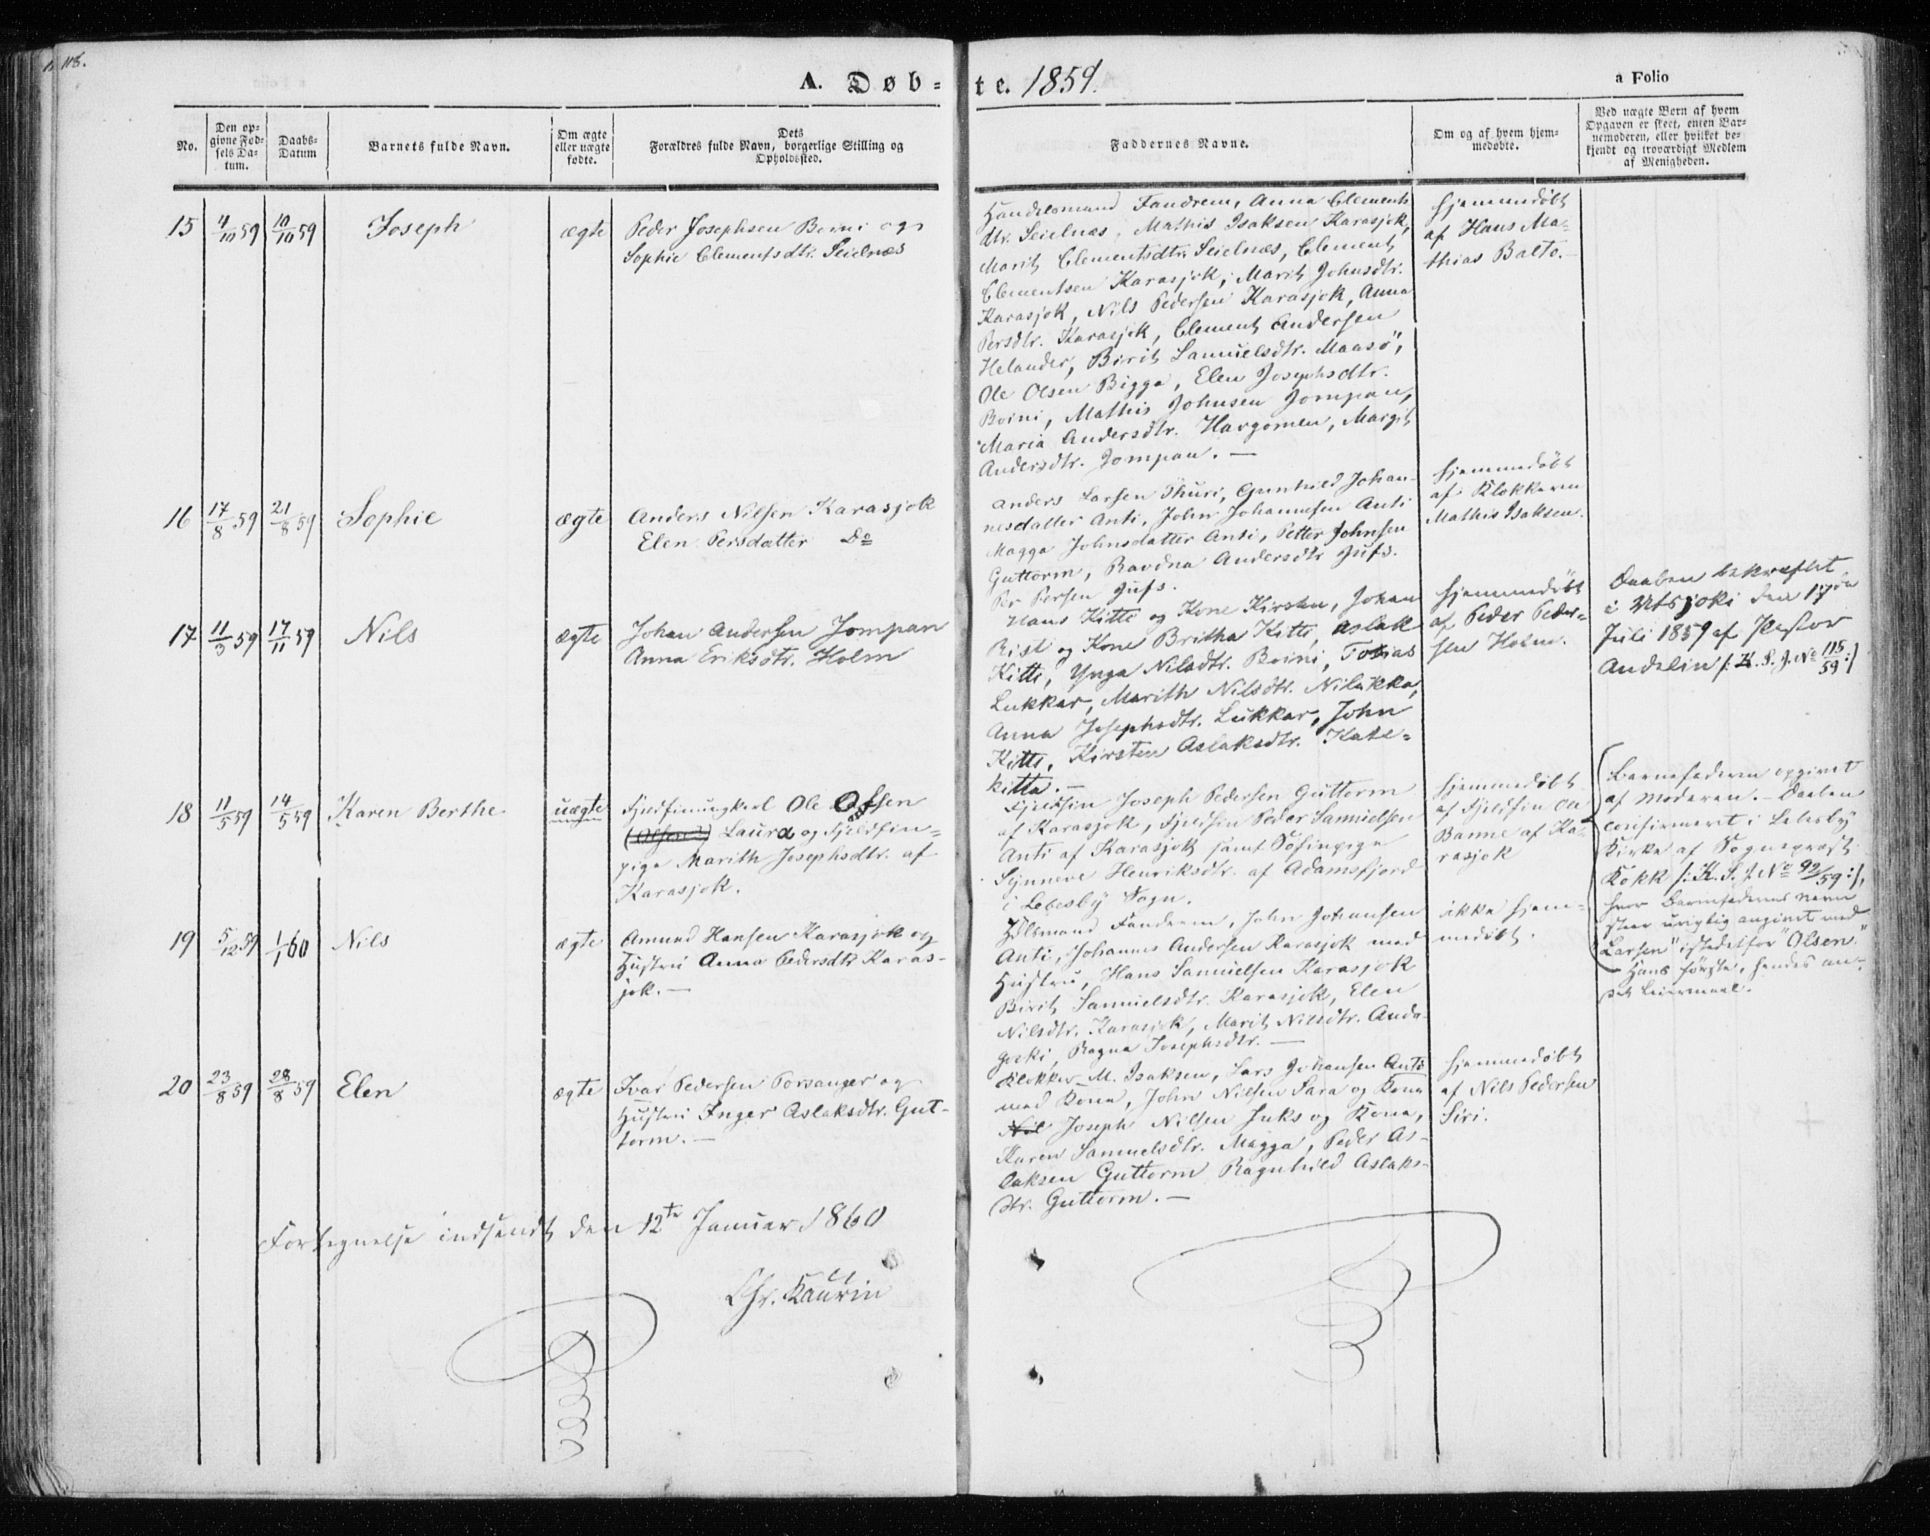 118.
A. Døb-
te. 1859.
a Folio
No.
Den op-
givne Fød-
sels Da-
tum.
Daabs-
Datum
Barnets fulde Navn.
Om ægte
eller uægte
fødte.
Dets
Forældres fulde Navn, borgerlige Stilling og
Opholdssted.
Faddernes Navne.
Om og af hvem hjem-
medøbte.
Ved uægte Børn af hvem
Opgaven er skeet, enten Bar-
nemoderen, eller hvilket be-
kjendt og troværdigt Medlem
af Menigheden.
15
4/10 59
10/10 59
Joseph
ægte
Peder Josephsen Boini og
Sophie Clementsdtr. Seielnæs
Handelsmand Fandrem, Anna Clements
dtr. Seielnæs, Mathis Isaksen Karasjok,
Marit Clementsdtr. Seielnæs, Clement
Clementsen Karasjok, Marit Johnsdtr.
Karasjok, Nils Pedersen Karasjok, Anna
Persdtr. Karasjok, Clement Andersen
Helander, Birit Samuelsdtr. Maasö,
Ole Olsen Bigga, Elen Josephsdtr.
Boini, Mathis Johnsen Jompan,
Maria Andersdtr. Havgomen, Margit
Andersdtr. Jompan. —
hjemmedöbt
af Hans Ma-
thias Balto. —
16
17/8 59
21/8 59
Sophie
ægte
Anders Nilsen Karasjok
Elen Persdatter Do
Anders Larsen Thuri, Gunhild Johan-
nesdatter Anti, John Johannesen Anti
Magga Johnsdatter Anti, Petter Johnsen
Guttorm, Ravdna Andersdtr Jufs.
Per Persen Jufs.
hjemmedöbt
af Klokkeren
Mathis Isaksen.
17
11/3 59
17/11 59
Nils
ægte
Johan Andersen Jompan
Anna Eriksdtr. Holm
Hans Kitti og Kone Kirsten, Johan
Rist og Kone Britha Kitti, Aslak
Kitti, Ynga Nilsdtr. Boini, Tobias
Lukkar, Marith Nilsdtr. Nilukka,
Anna Josephsdtr. Lukkar, John
Kitti, Kirsten Aslaksdtr. Kate-
kitta. —
hjemmedöbt
af Peder Peder-
sen Holm.
Daaben bekræftet
i Utsjoki den 17de
Juli 1859 af Pastor
Andelin /: K. S. J. No 115/59 :/
18
11/5 59
14/5 59
Karen Berthe
uægte
Fjeldfinungkarl Ole Olsen
(Olsen) Laura og Fjeldfin-
pige Marith Josephsdtr. af
Karasjok.
Fjeldfin Joseph Pedersen Guttorm
af Karasjok, Fjeldfin Peder Samuelsen
Anti af Karasjok samt Söfinpige
Synneve Henriksdtr. af Adamsfjord
i Lebesby Sogn.
hjemmedöbt
af Fjeldfin Ole
Banne af Ka-
rasjok
Barnefaderen opgivet
af Moderen. — Daaben
confirmeret i Lebesby
Kirke af Sognepræst
Kokk /: K. S. J. No 92/59 :/,
hvor Barnefaderens navn
staar urigtig angivet med
"Larsen" istedetfor "Olsen"
Hans förste, hendes an-
det Leiermaal.
19
5/12 59
1/1 60
Nils
ægte
Amund Hansen Karasjok og
Hustru Anna Pedersdtr Karas-
jok. —
Handelsmand Fandrem, John Johansen
Anti, Johannes Andersen Karasjok med
Hustru, Hans Samuelsen Karasjok
Birit Samuelsdtr. Karasjok, Elen
Nilsdtr. Karasjok, Marit Nilsdtr. Ando-
joski, Ragna Josephsdtr. —
ikke hjem-
medöbt.
20
23/8 59
28/8 59
Elen
ægte
Ivar Pedersen Porsanger og
Hustru Inger Aslaksdtr. Gut-
torm. —
Klokker M. Isaksen, Lars Johansen Anti
med Kone, John Nilsen Sara og Kone
Nil Joseph Nilsen Juks og Kone,
Karen Samuelsdtr. Magga, Peder As-
laksen Guttorm Ragnhild Aslaks-
dtr. Guttorm. —
hjemmedöbt
af Nils Pedersen
Siri.
Fortegnelse indsendt den 12te Januar 1860
Chr. Kaurin